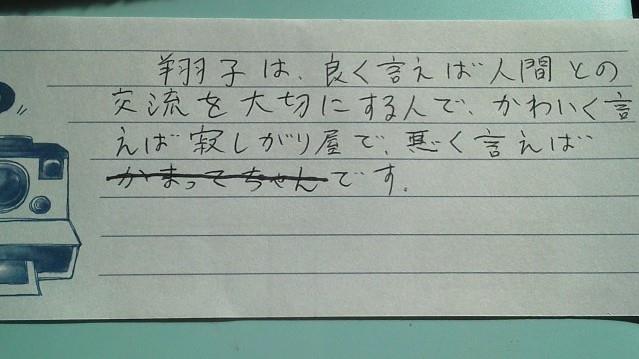 翔子は、良く言えば人間との
交流を大切にする人で、かわいく言
えば寂しがり屋で、悪く言えば
かまってちゃんです。